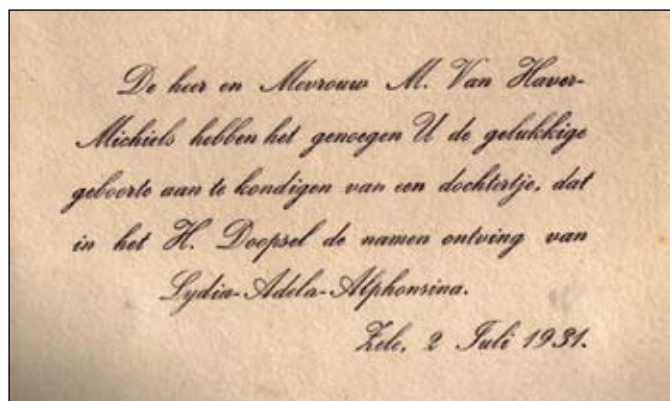 De heer en Mevrouw M. Van Haver-
Michiels hebben het genoegen U de gelukkige
geboorte aan te kondigen van een dochtertje, dat
in het H. Doopsel de namen ontving van
Lydia-Adela-Alphonsina.
Zele, 2 Juli 1931.